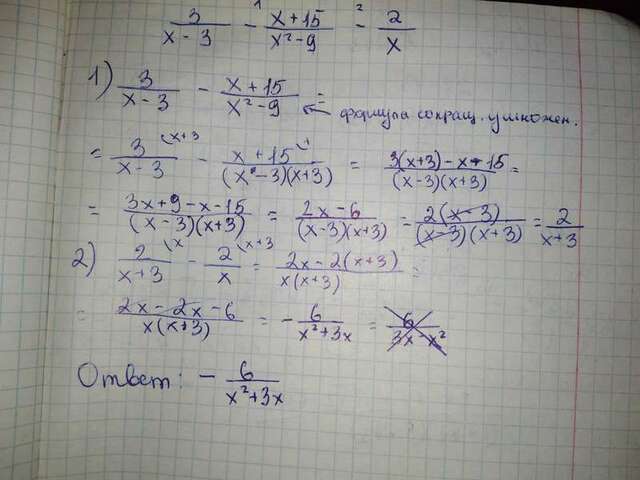 3/(x-3) -¹ (x+15)/(x²-9) -² 2/x
1) 3/(x-3) - (x+15)/(x²-9) = ← формула сокращ. умножен.
= 3/(x-3) (x+3 - (x+15)/((x-3)(x+3)) (1 = (3(x+3)-x-15)/((x-3)(x+3)) =
= (3x+9-x-15)/((x-3)(x+3)) = (2x-6)/((x-3)(x+3)) = 2(x-3)/((x-3)(x+3)) = 2/(x+3)
2) 2/(x+3) (x - 2/x (x+3 = (2x-2(x+3))/(x(x+3)) =
= (2x-2x-6)/(x(x+3)) = - 6/(x²+3x) = 6/(3x-x²)
Ответ: - 6/(x²+3x)